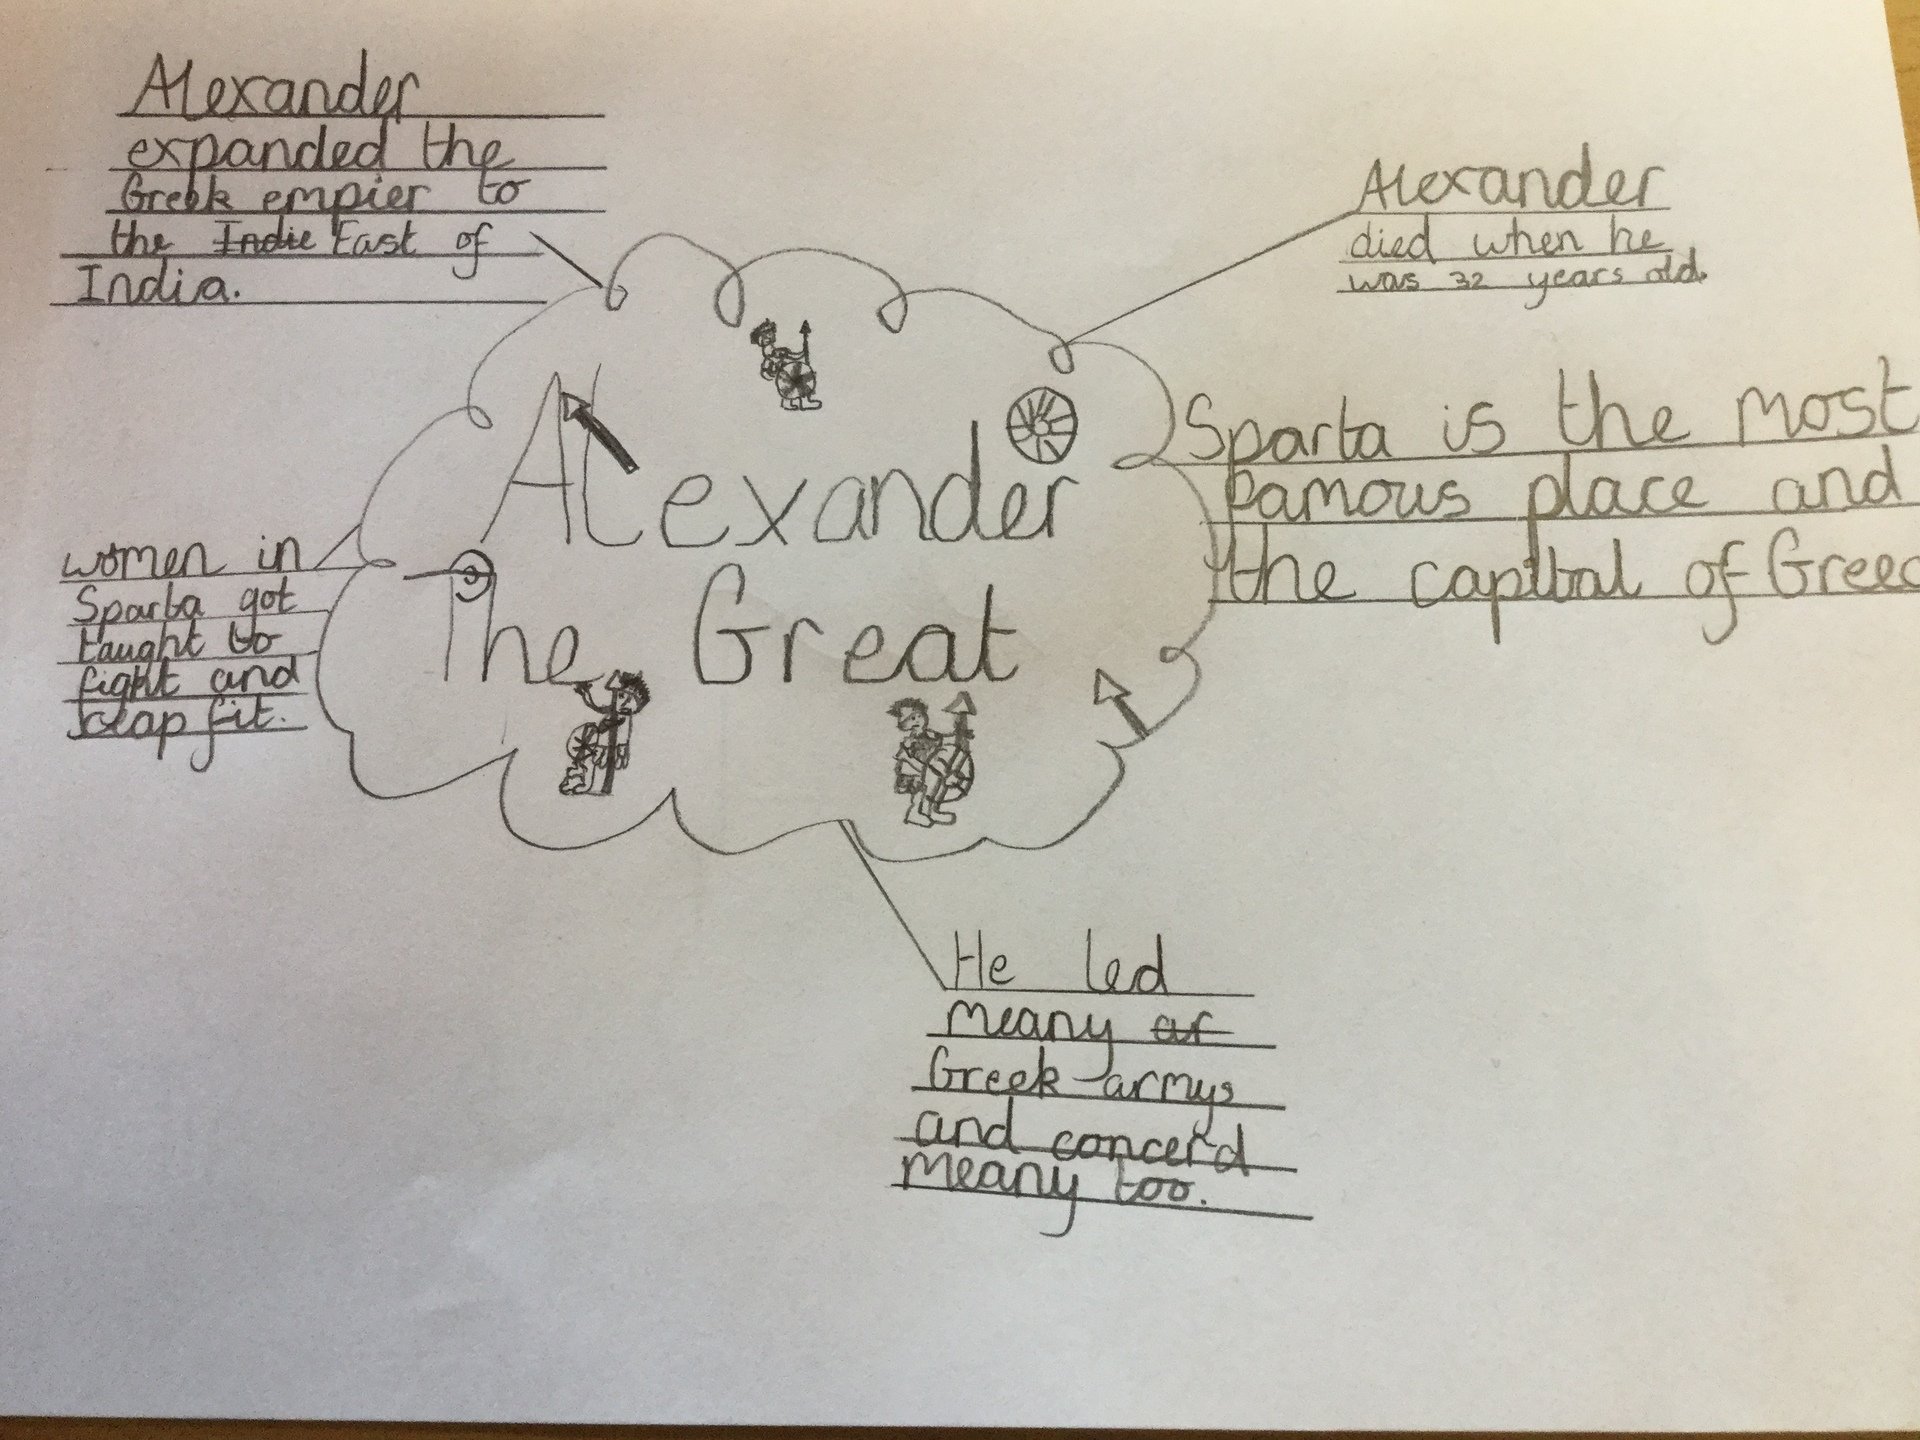 Alexander
expanded the
Greek empier to
the Indie East of
India.
Alexander
died when he
was 32 years old.
Sparta is the most
famous place and
the capital of Greec
Alexander
The Great
women in
Sparta got
taught to
fight and
keap fit.
He led
meany ar
Greek armys
and concerd
meany too.